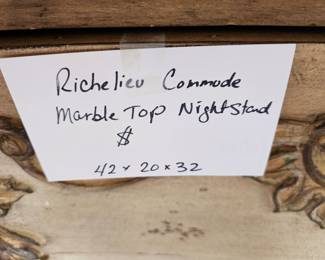 Richelieu Commode
Marble Top NightStand
$
42 x 20 x 32